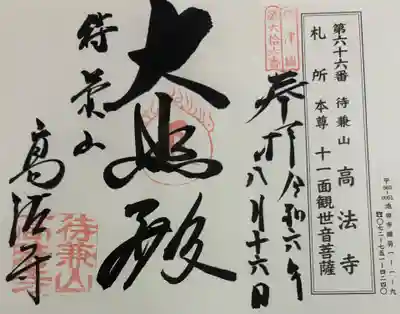 第六十六番 待兼山 高法寺
札所 本尊 十一面観世音菩薩
第六拾六番
奉拝 令和六年
八月十六日
大悲殿
待兼山
高法寺
待兼山